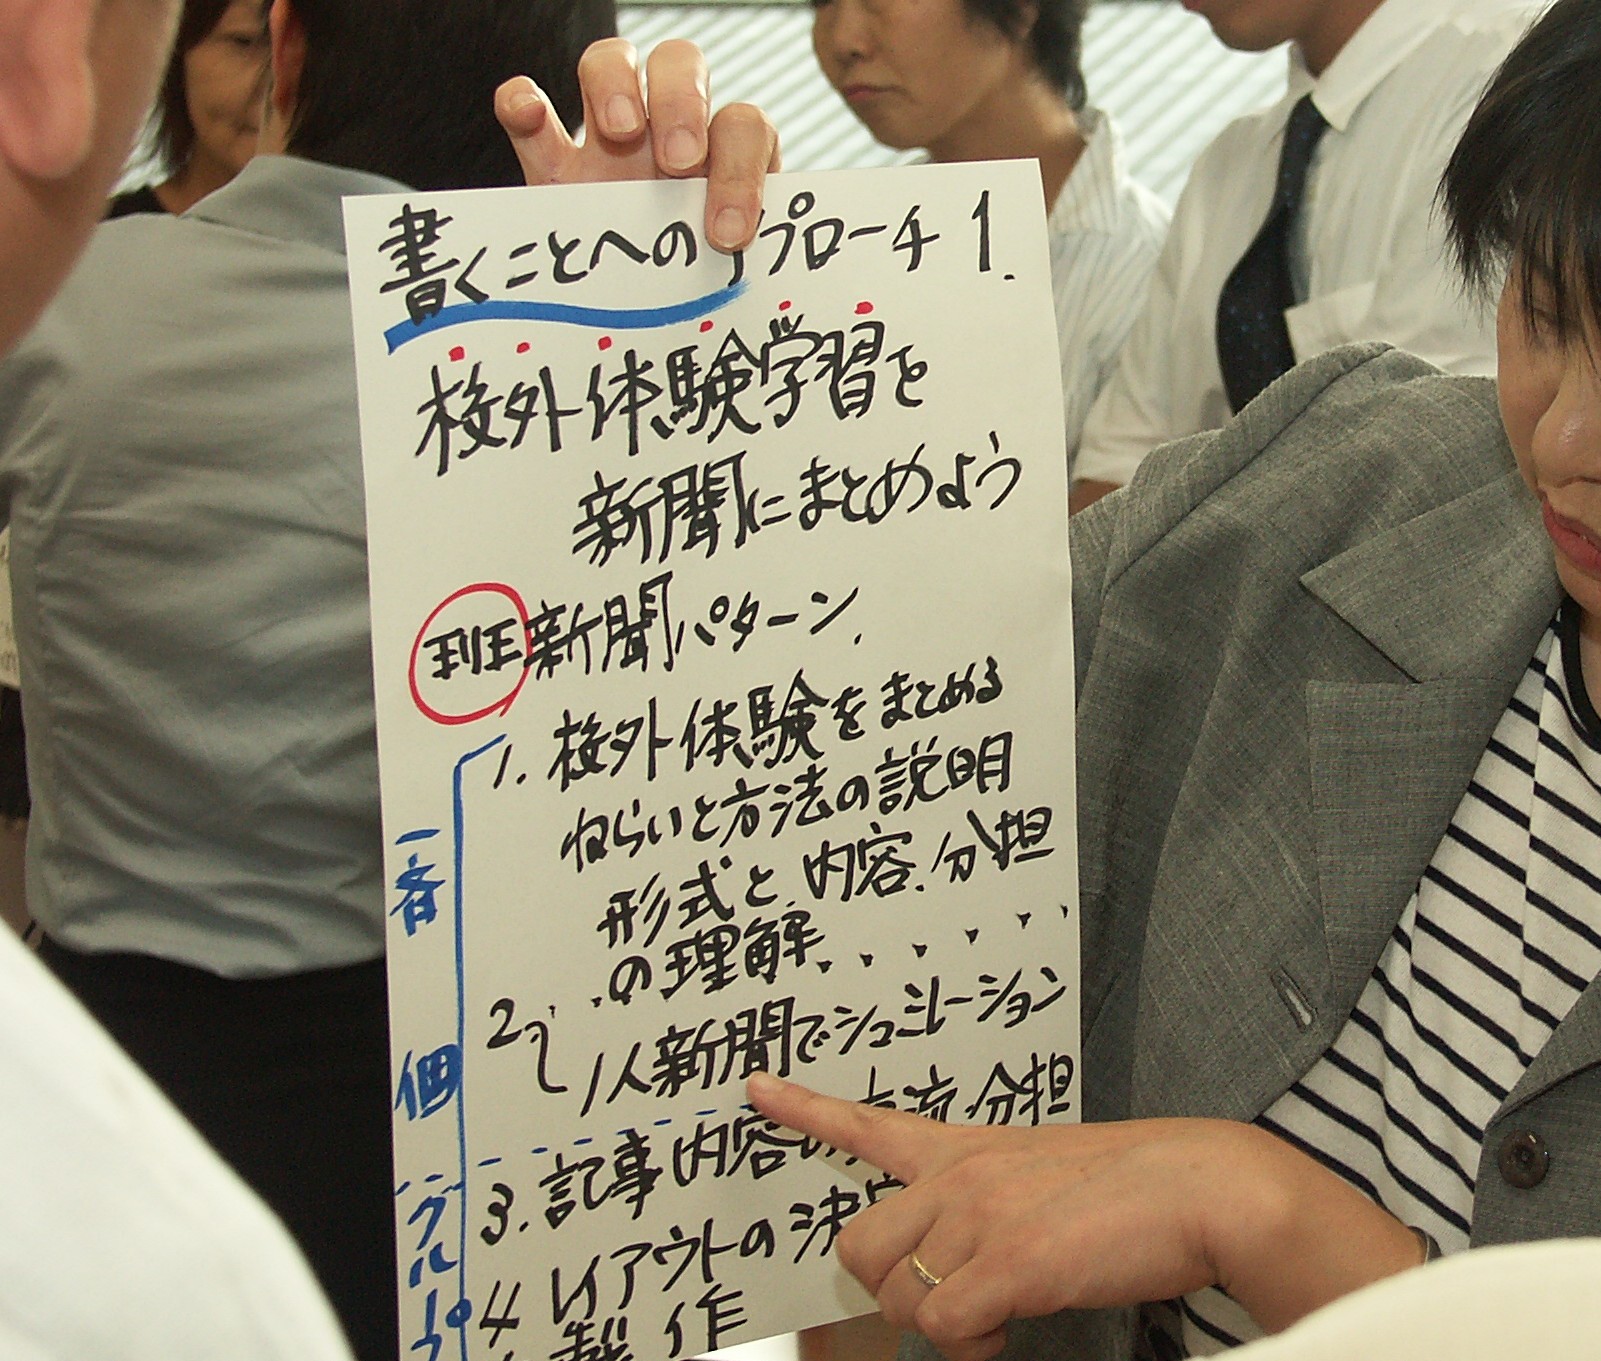 書くことへのアプローチ 1.
校外体験学習を
新聞にまとめよう
班新聞パターン.
1. 校外体験をまとめる
ねらいと方法の説明
形式と、内容、分担
の理解
2
1人新聞でシュミレーション
3. 記事内容の交流、分担
4 レイアウトの決定
製作
一斉
個
グループ